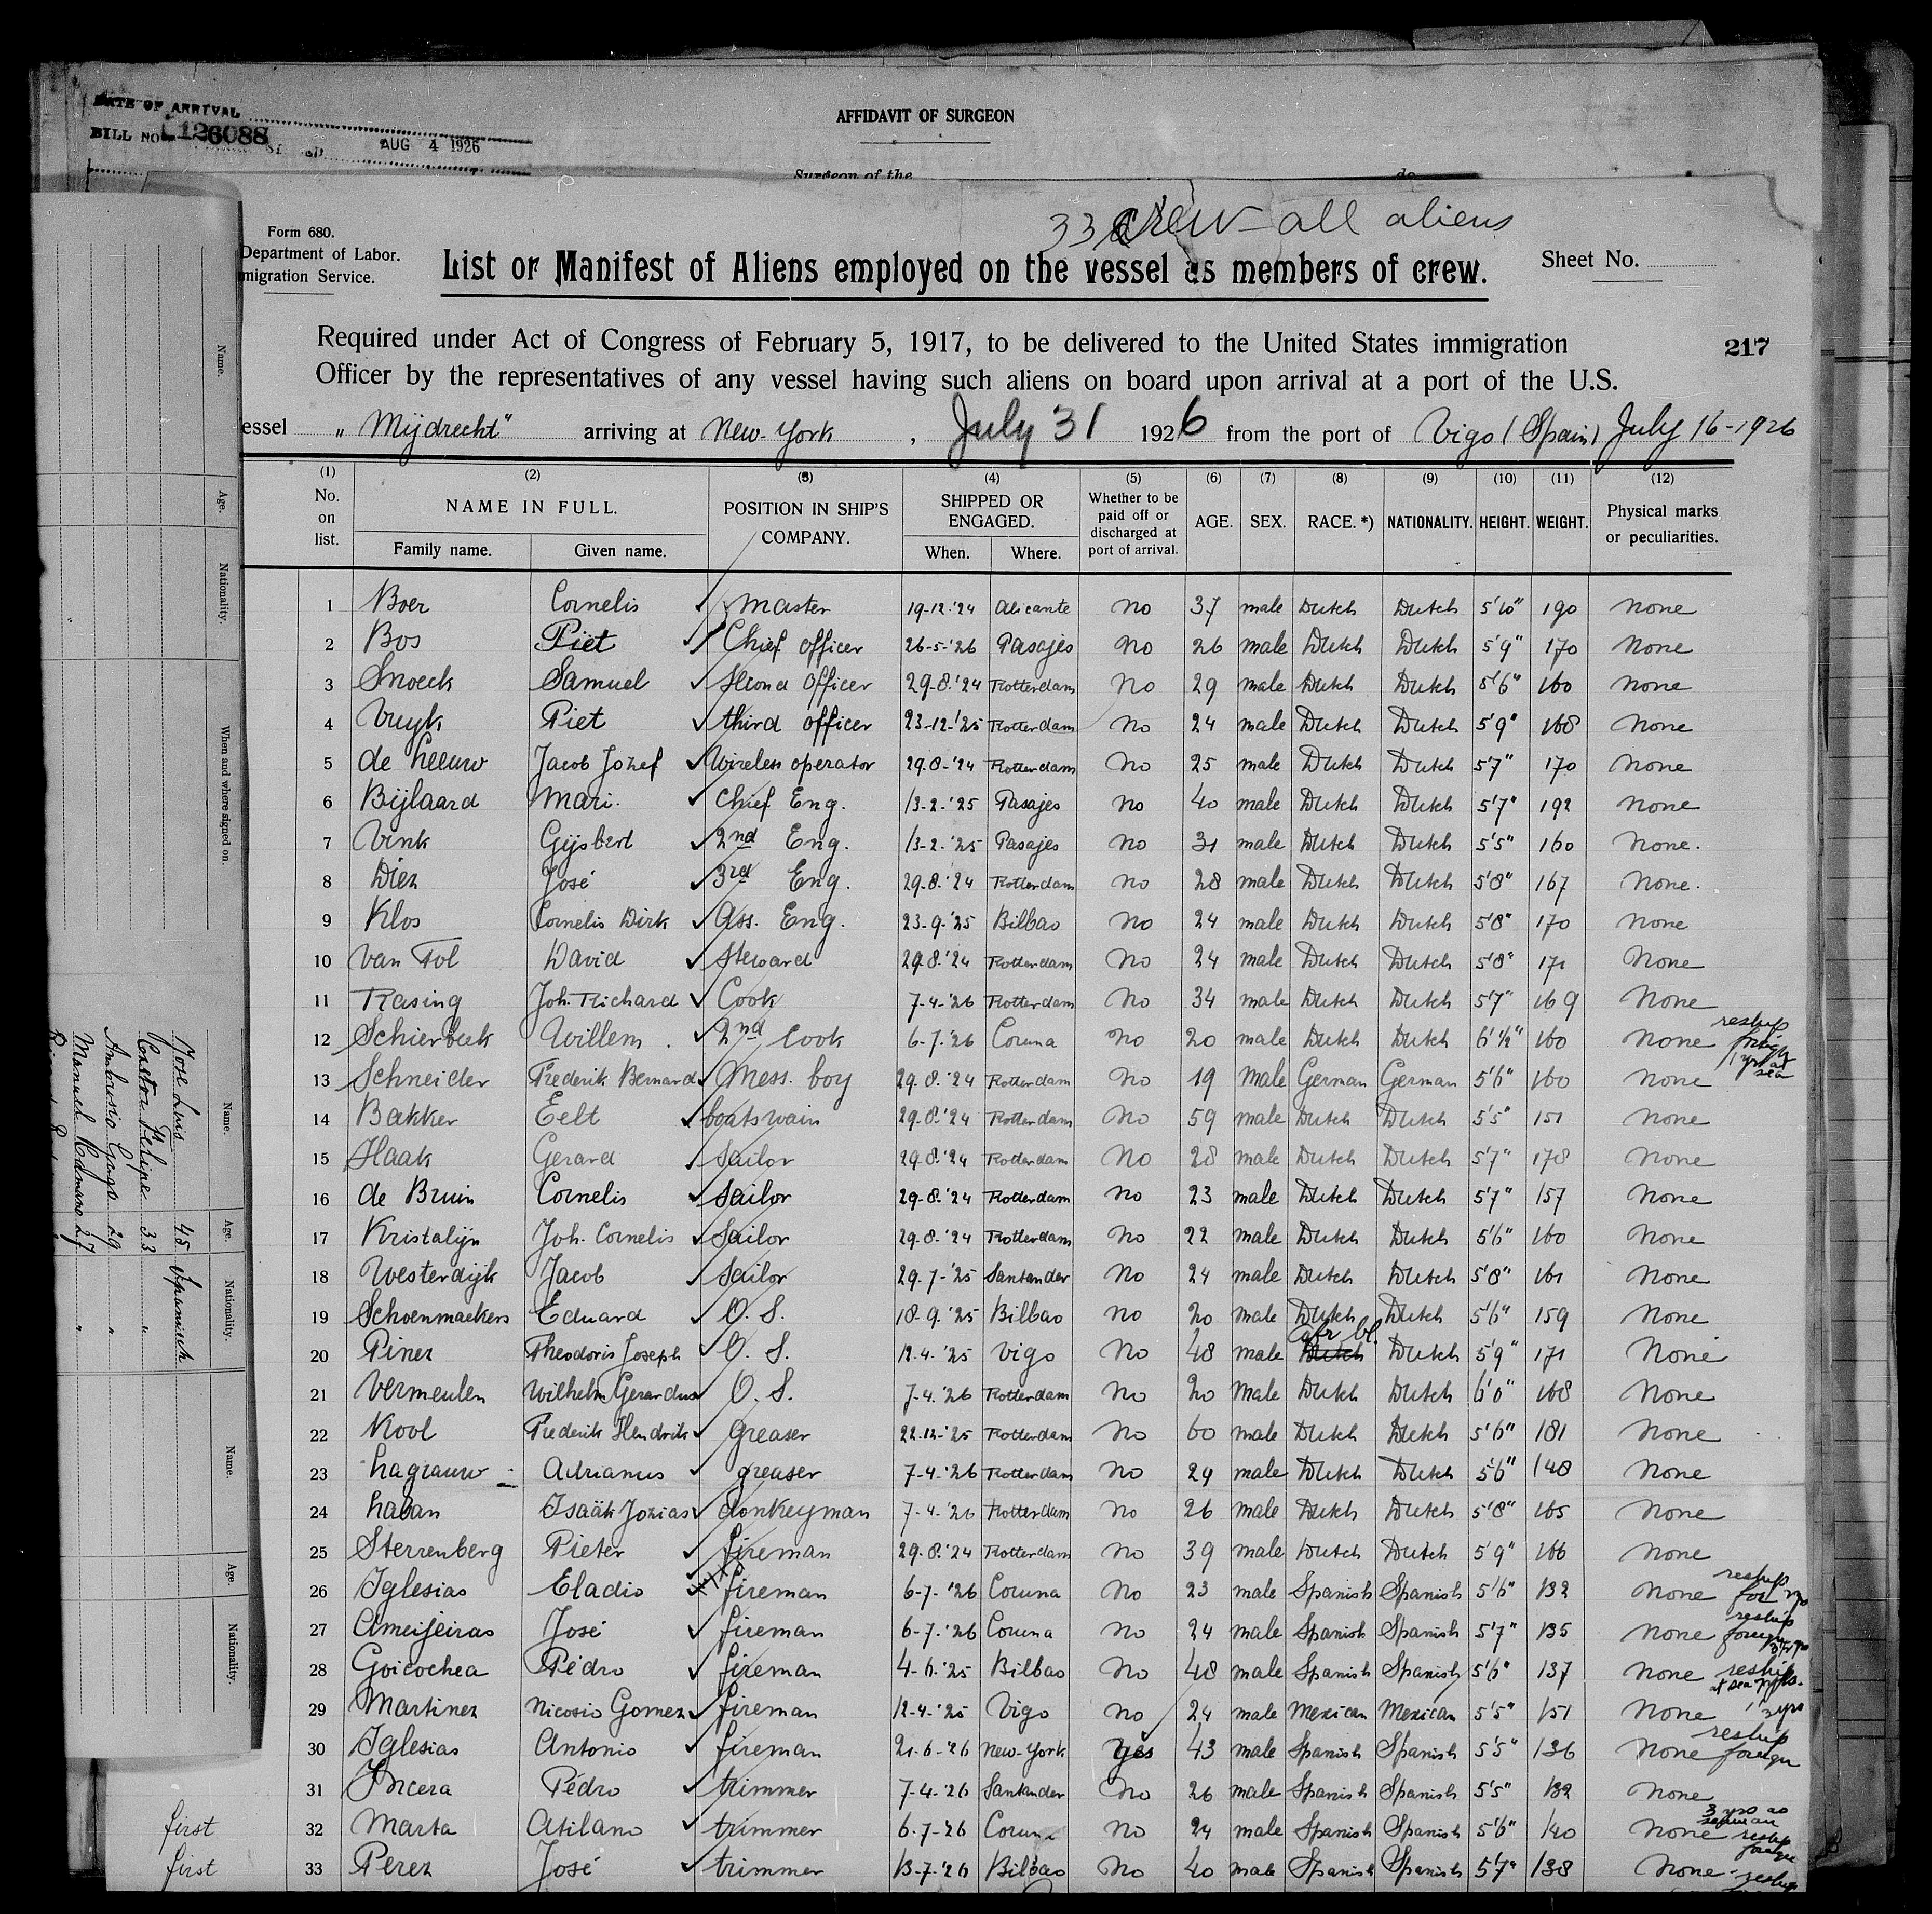 DATE OF ARRIVAL
BILL NO. 126088
AUG 4 1926
AFFIDAVIT OF SURGEON
Surgeon of the
do
33 crew - all aliens
Form 680.
Department of Labor.
migration Service.
List or Manifest of Aliens employed on the vessel as members of crew.
Sheet No.
Required under Act of Congress of February 5, 1917, to be delivered to the United States immigration
217
Officer by the representatives of any vessel having such aliens on board upon arrival at a port of the U.S.
essel „Mijdrecht" arriving at New-York, July 31 1926 from the port of Vigo (Spain) July 16-1926
(1) (2) (3) (4) (5) (6) (7) (8) (9) (10) (11) (12)
No. on list. NAME IN FULL. POSITION IN SHIP'S COMPANY. SHIPPED OR ENGAGED. Whether to be paid off or discharged at port of arrival. AGE. SEX. RACE.*) NATIONALITY. HEIGHT. WEIGHT. Physical marks or peculiarities.
Family name. Given name. When. Where.
1 Boer Cornelis master 19-12-'24 Alicante no 37 male Dutch Dutch 5'10" 190 none
2 Bos Piet Chief officer 26-5-'26 Pasajes no 26 male Dutch Dutch 5'9" 170 none
3 Snoeck Samuel Second officer 29-8-'24 Rotterdam no 29 male Dutch Dutch 5'6" 160 none
4 Vuyk Piet third officer 23-12-'25 Rotterdam no 24 male Dutch Dutch 5'9" 168 none
5 de Leeuw Jacob Jozef Wireless operator 29-8-'24 Rotterdam no 25 male Dutch Dutch 5'7" 170 none
6 Bijlaard Mari. Chief Eng. 13-2-'25 Pasajes no 40 male Dutch Dutch 5'7" 192 none
7 Vink Gijsbert 2nd Eng. 13-2-'25 Pasajes no 31 male Dutch Dutch 5'5" 160 none.
8 Diez José 3rd Eng. 29-8-'24 Rotterdam no 28 male Dutch Dutch 5'8" 167 none.
9 Klos Cornelis Dirk Ass. Eng. 23-9-'25 Bilbao no 24 male Dutch Dutch 5'8" 170 none
10 van Tol David Steward 29-8-'24 Rotterdam no 24 male Dutch Dutch 5'8" 171 none
11 Rasing Joh. Richard Cook 7-4-'26 Rotterdam no 34 male Dutch Dutch 5'7" 169 none
12 Schierbeek Willem. 2nd Cook 6-7-'26 Coruna no 20 male Dutch Dutch 6'1½" 160 none reship foreign 1 yr at sea
13 Schneider Frederik Bernard Mess. boy 29-8-'24 Rotterdam no 19 male German German 5'6" 160 none
14 Bakker Eelt boatswain 29-8-'24 Rotterdam no 59 male Dutch Dutch 5'5" 151 none
15 Haak Gerard Sailor 29-8-'24 Rotterdam no 28 male Dutch Dutch 5'7" 178 none
16 de Bruin Cornelis Sailor 29-8-'24 Rotterdam no 23 male Dutch Dutch 5'7" 157 none
17 Kristalijn Joh. Cornelis Sailor 29-8-'24 Rotterdam no 22 male Dutch Dutch 5'6" 160 none
18 Westerdijk Jacob Sailor 29-7-'25 Santander no 24 male Dutch Dutch 5'8" 161 none
19 Schoenmaekers Eduard O. S. 18-9-'25 Bilbao no 20 male Dutch Dutch 5'6" 159 none
20 Pinez Theodoris Joseph O. S. 12-4-'25 Vigo no 48 male Dutch Afr bl. Dutch 5'9" 171 none
21 Vermeulen Wilhelm Gerardus O. S. 7-4-'26 Rotterdam no 20 male Dutch Dutch 6'0" 168 none
22 Kool Frederik Hendrik greaser 22-12-'25 Rotterdam no 60 male Dutch Dutch 5'6" 181 none
23 Lagrauw Adrianus greaser 7-4-'26 Rotterdam no 29 male Dutch Dutch 5'6" 148 none
24 Laban Isaäk Jozias donkeyman 7-4-'26 Rotterdam no 26 male Dutch Dutch 5'8" 165 none
25 Sterrenberg Pieter fireman 29-8-'24 Rotterdam no 39 male Dutch Dutch 5'9" 166 none
26 Iglesias Eladio fireman 6-7-'26 Coruna no 23 male Spanish Spanish 5'6" 132 none reship for
27 Ameijeiras José fireman 6-7-'26 Coruna no 24 male Spanish Spanish 5'7" 135 none reship foreign
28 Goicochea Pédro fireman 4-6-'25 Bilbao no 48 male Spanish Spanish 5'6" 137 none reship at sea
29 Martinez Nicosio Gomez fireman 12-4-'25 Vigo no 24 male Mexican Mexican 5'5" 151 none
30 Iglesias Antonio fireman 21-6-'26 New-York Yes 43 male Spanish Spanish 5'5" 136 none reship foreign
31 Incera Pédro trimmer 7-4-'26 Santander no 26 male Spanish Spanish 5'5" 132 none
first 32 Marta Atilano trimmer 6-7-'26 Coruna no 24 male Spanish Spanish 5'6" 140 none 3 yrs as seaman reship foreign
first 33 Perez José trimmer 13-7-'26 Bilbao no 40 male Spanish Spanish 5'7" 138 none reship
Name. Age. Nationality. When and where signed on.
Name. Age. Nationality.
Jose Luis 45 Spanisch
Castor Felipe 33 "
Ambrosio 29 "
Manuel 27 "
Name. Age. Nationality.